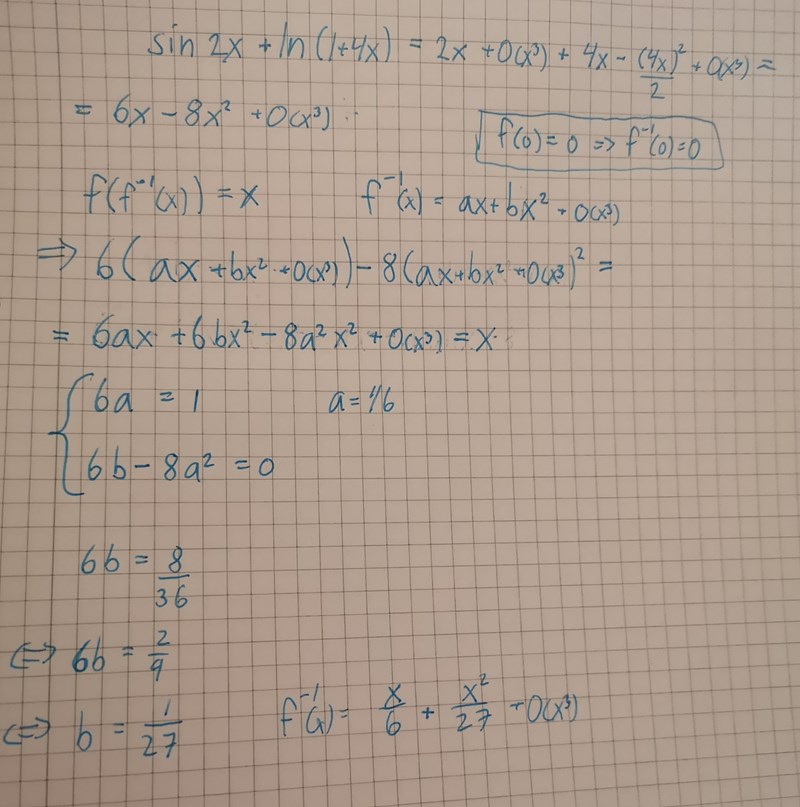 sin 2x + ln(1+4x) = 2x + O(x³) + 4x - (4x)²/2 + O(x³) =
= 6x - 8x² + O(x³)
f(0) = 0 ⇒ f⁻¹(0) = 0
f(f⁻¹(x)) = x f⁻¹(x) = ax + bx² + O(x³)
⇒ 6(ax + bx² + O(x³)) - 8(ax + bx² + O(x³))² =
= 6ax + 6bx² - 8a²x² + O(x³) = x
{ 6a = 1 a = 1/6
6b - 8a² = 0
6b = 8/36
⇔ 6b = 2/9
⇔ b = 1/27 f⁻¹(x) = x/6 + x²/27 + O(x³)